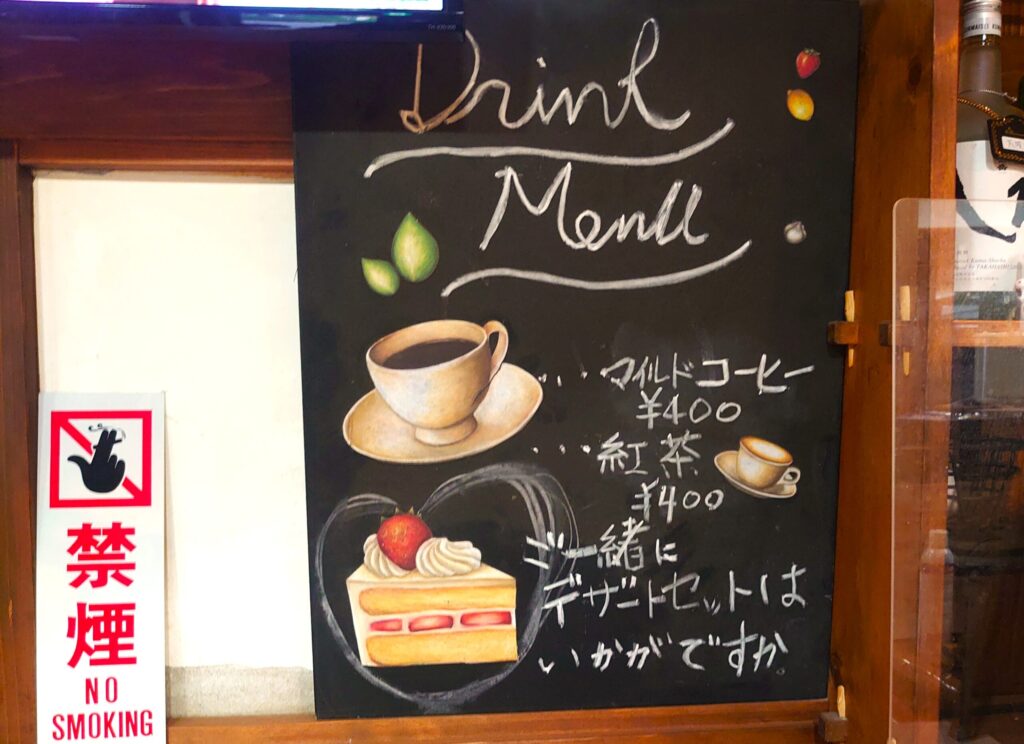 Drink
Menu
...マイルドコーヒー
¥400
...紅茶
¥400
ご一緒に
デザートセットは
いかがですか。
禁煙
NO
SMOKING